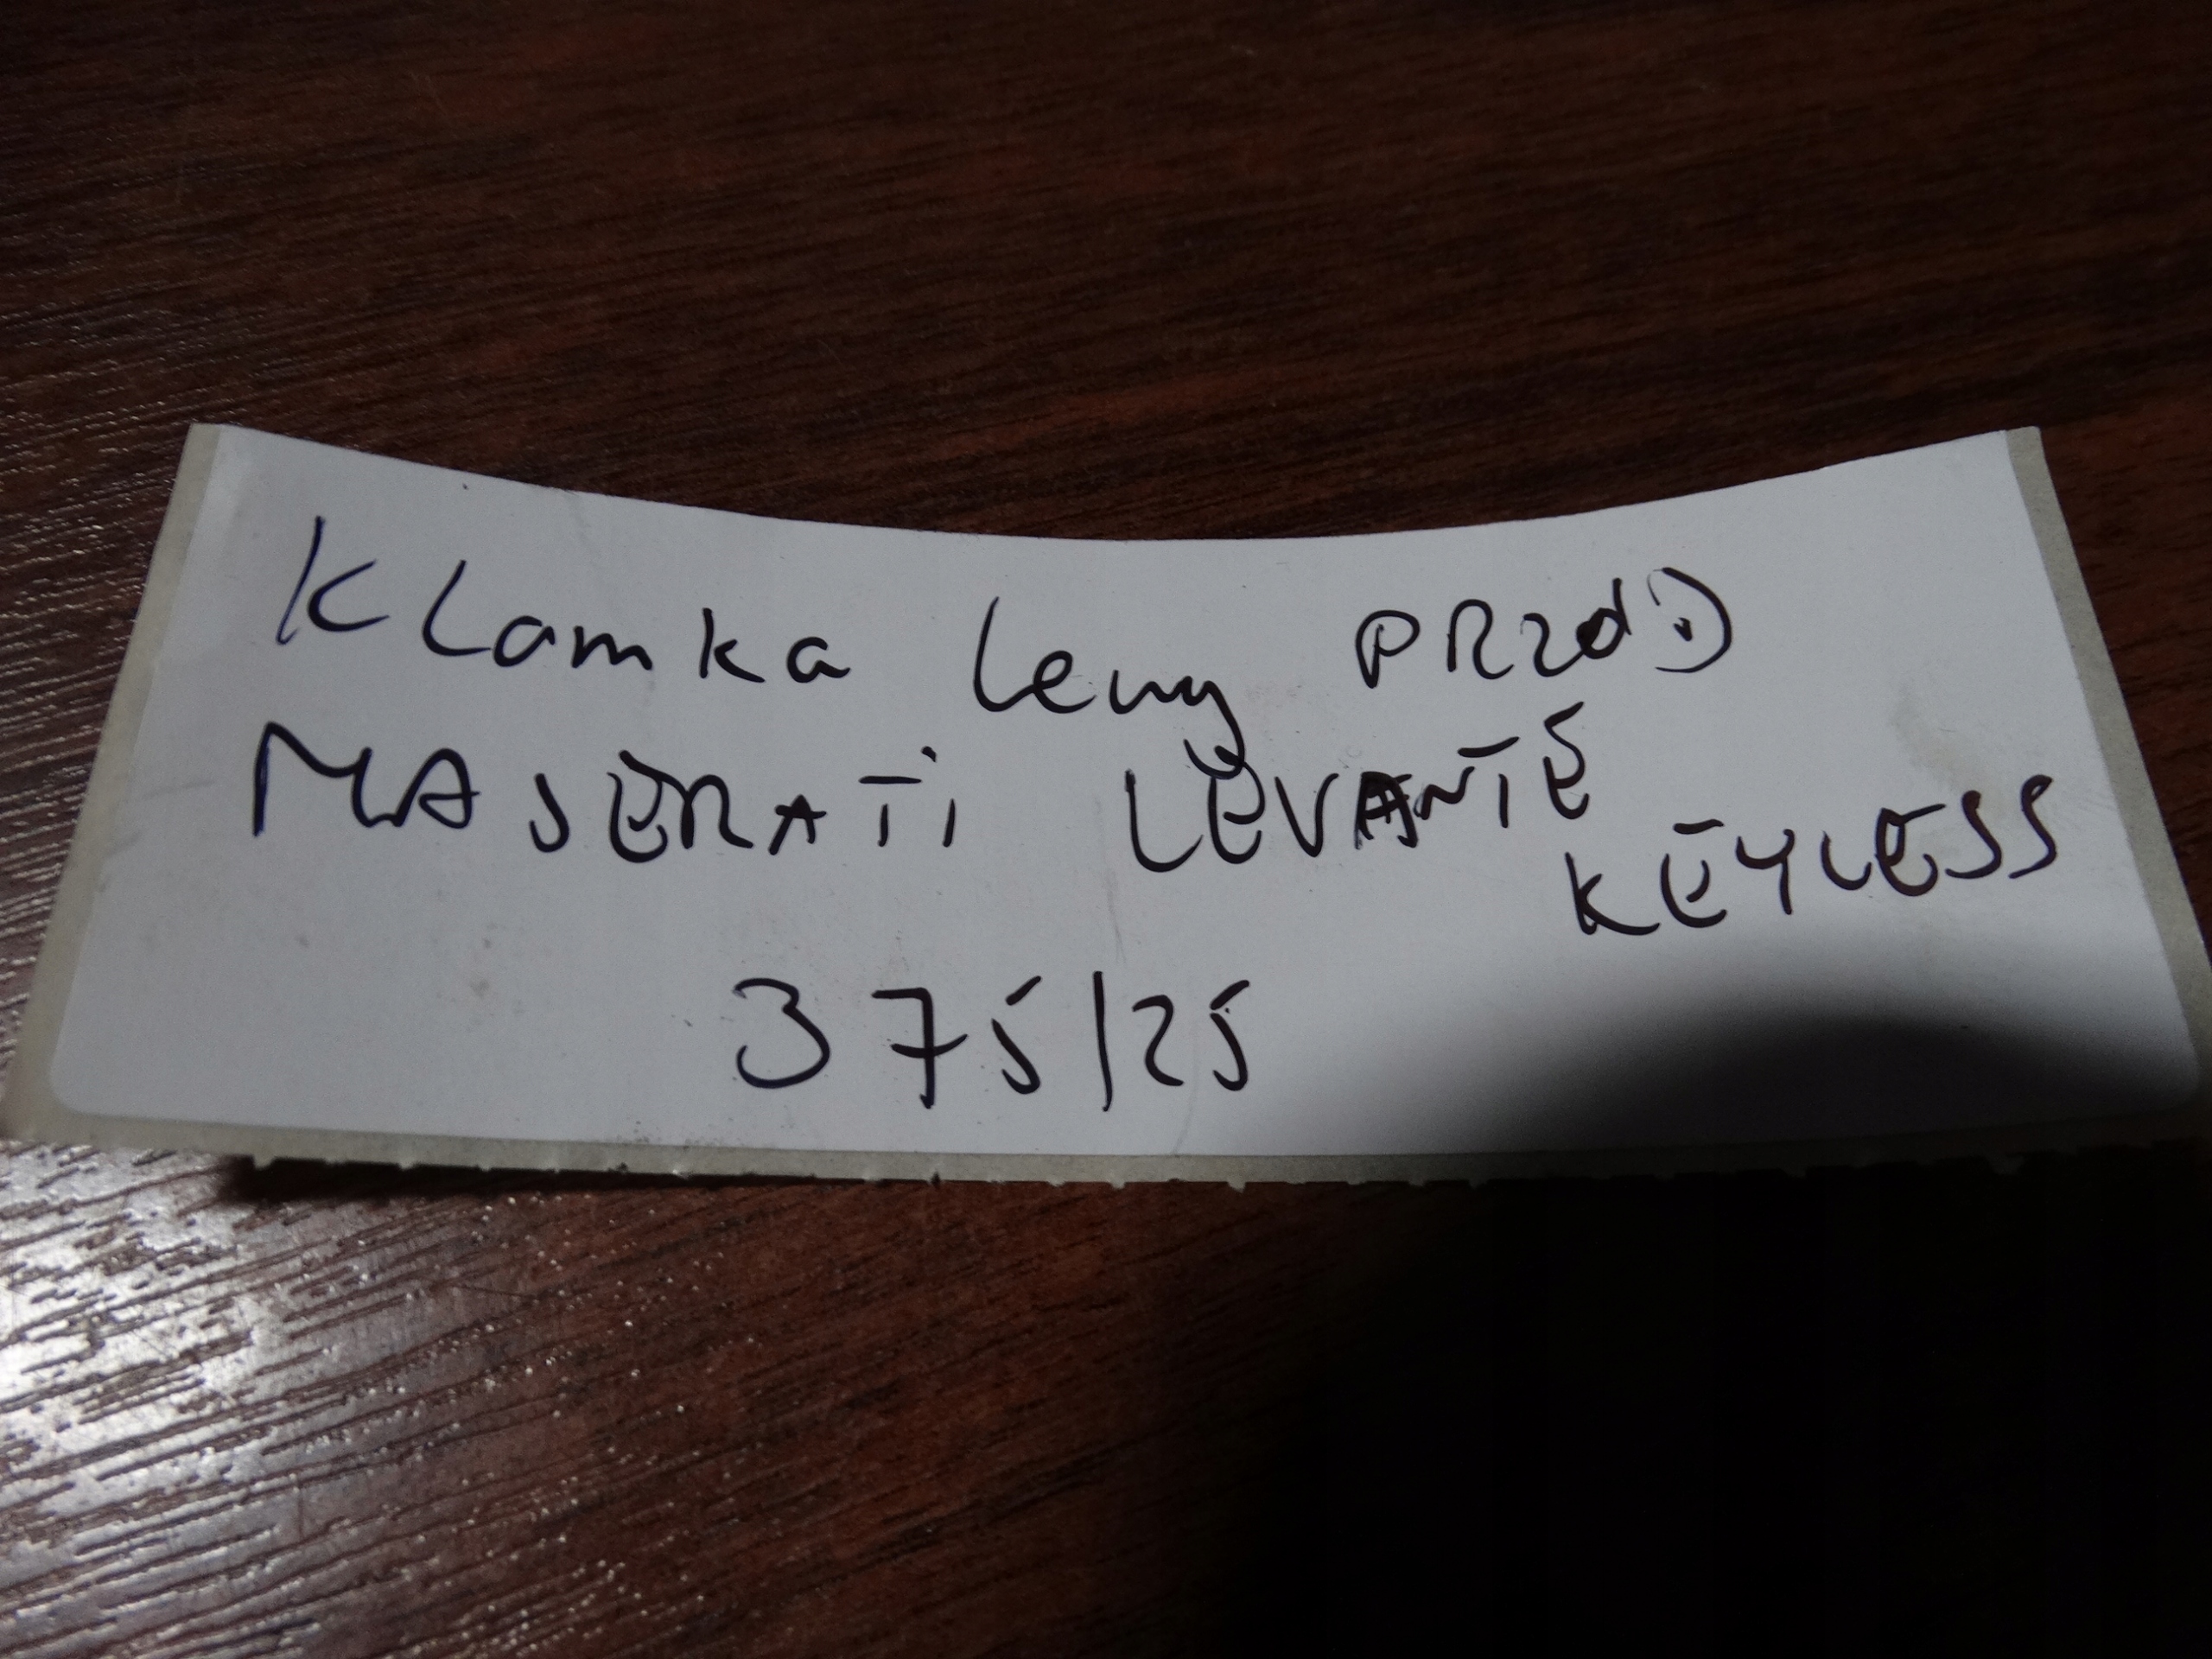 Klamka lewy PRzod
MASERATi LEVANTE
KEYLESS
375/25